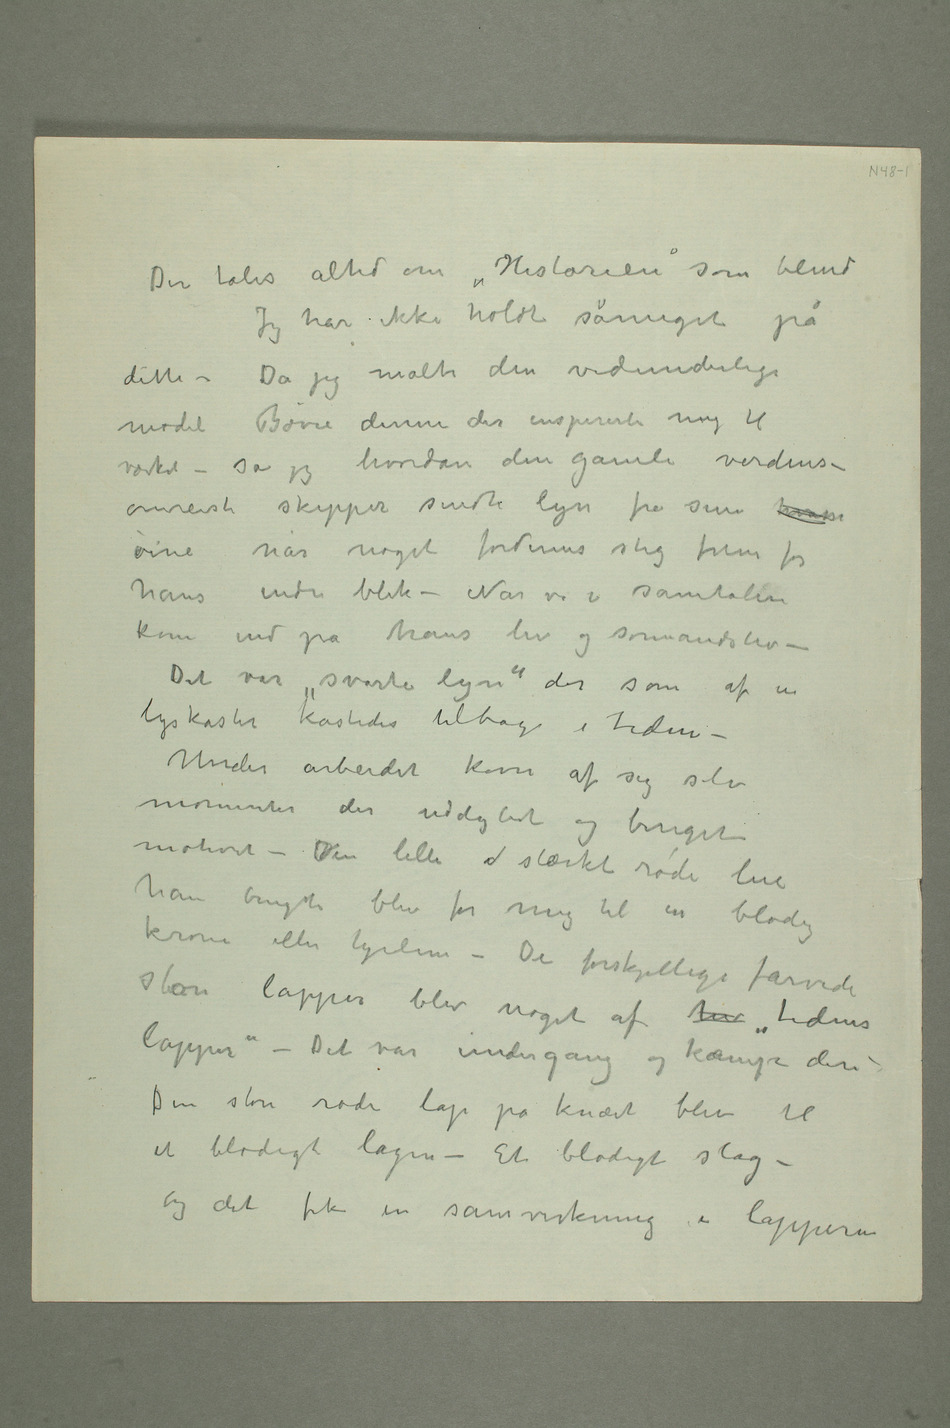 N48-1
Der tales altid om „Historien“ som blind
Jeg har ikke holdt såmeget på
dette – Da jeg malte den vidunderlige
model Børre denne der inspirerte mig til
værket – så jeg hvordan den gamle verdens-
omreiste skipper sendte lyn fra sine
øine når noget fordums steg frem for
hans indre blik – Når vi i samtalen
kom ind på hans liv og sømandsliv –
Det var „svarte lyn“ der som af en
lyskaster kastedes tilbage i tiden –
Under arbeidet kom af sig selv
momenter der uddybet og beriget
motivet – Den lille stærkt røde lue
han brugte blev for mig til en blodig
krone eller hjelm – De forskjellige farvede
store lapper blev noget af „tidens
lapper“ – Det var undergang og kampe deri –
Den store røde lap på knæet blev til
et blodigt lagen – Et blodigt slag –
og det fik en samvirkning i lapperne